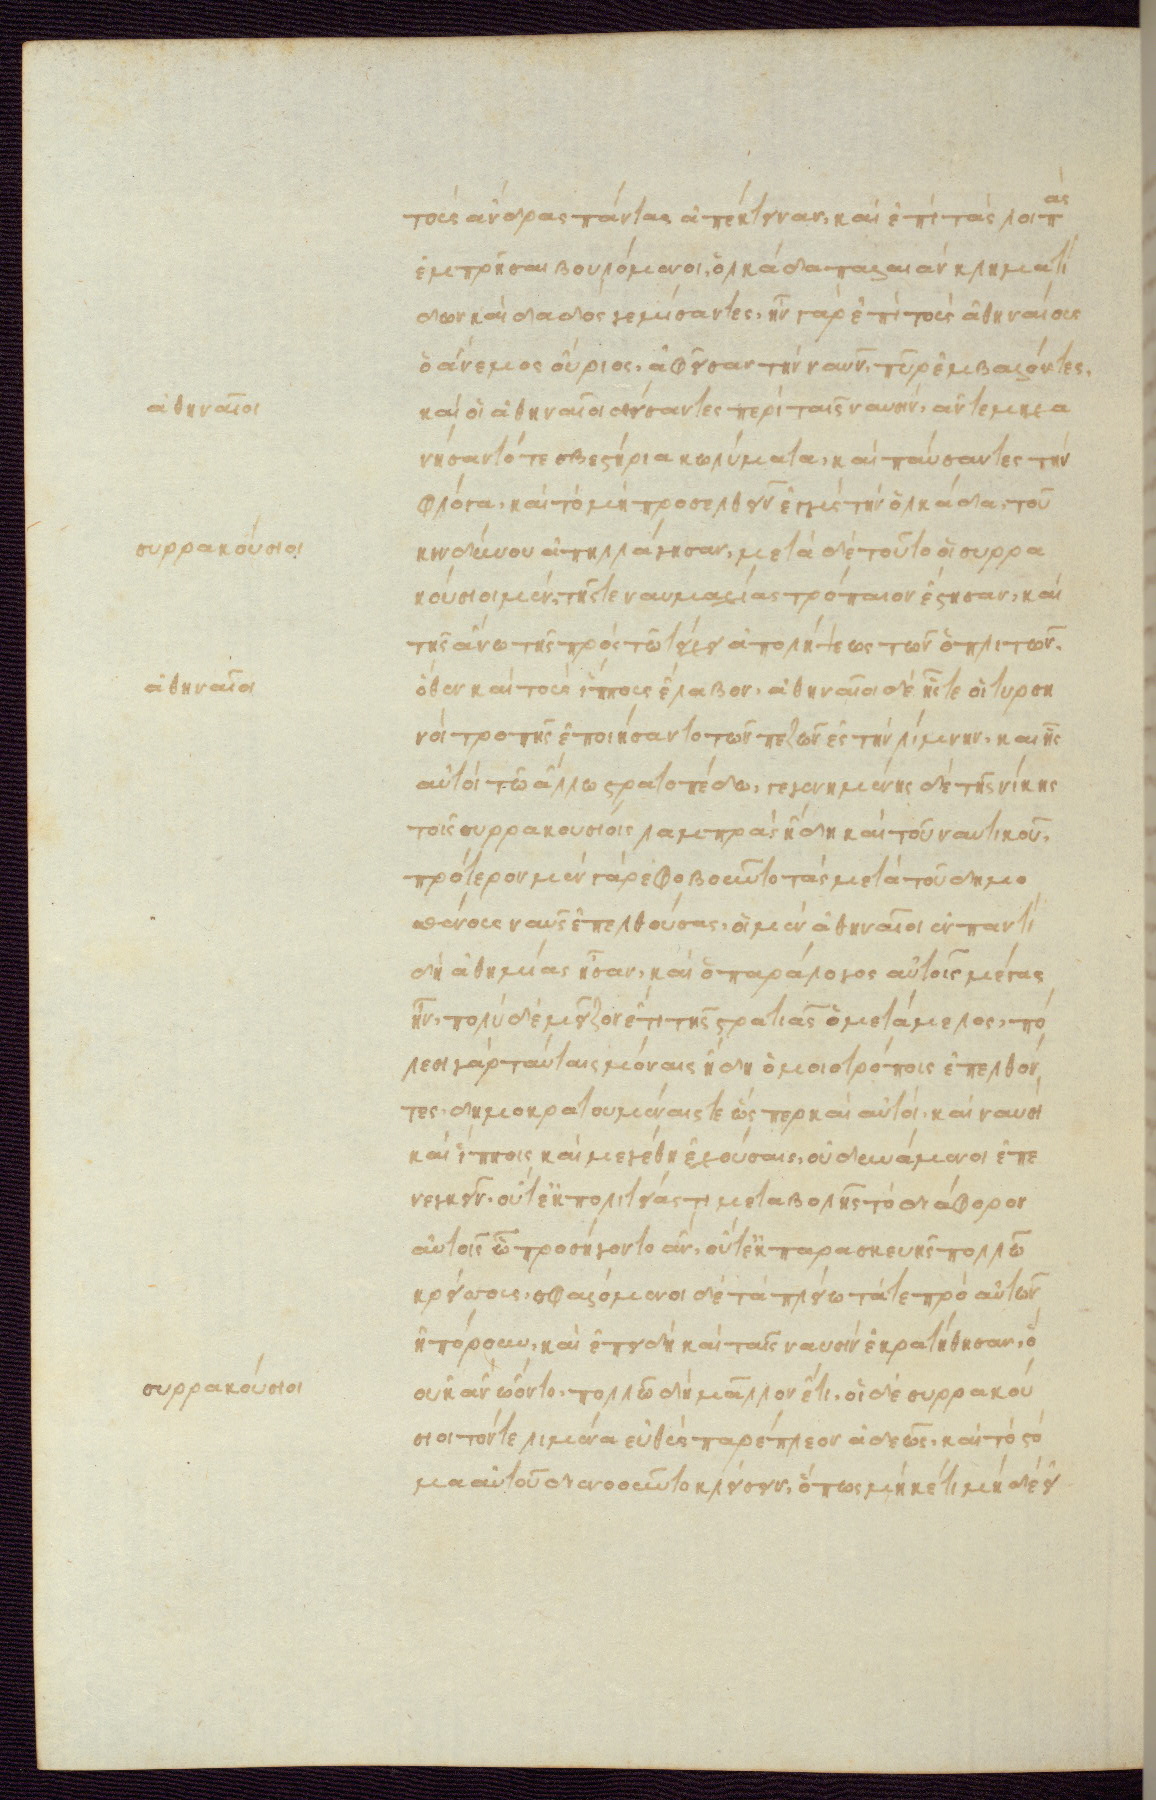 τοὺς ἄνδρας πάντας ἀπέκτειναν, καὶ ἐπὶ τὰς λοιπὰς
ἐμπρῆσαι βουλόμενοι, ὁλκάδα παλαιὰν κληματί
δων καὶ δαδὸς γεμίσαντες, ἦν γὰρ ἐπὶ τοὺς ἀθηναίους
ὁ ἄνεμος οὔριος, ἀφεῖσαν τὴν ναῦν, πῦρ ἐμβαλόντες,
ἀθηναῖοι
καὶ οἱ ἀθηναῖοι δείσαντες περὶ ταῖς ναυσὶν, ἀντεμηχα
νήσαντό τε σβεστήρια κωλύματα, καὶ παύσαντες τὴν
φλόγα, καὶ τὸ μὴ προσελθεῖν ἐγγὺς τὴν ὁλκάδα, τοῦ
συρρακούσιοι
κινδύνου ἀπηλλάγησαν, μετὰ δὲ τοῦτο οἱ συρρα
κούσιοι μὲν, τῆς τε ναυμαχίας τρόπαιον ἔστησαν, καὶ
τῆς ἄνω τῆς πρὸς τῶ τείχει ἀπολήψεως τῶν ὁπλιτῶν.
ἀθηναῖοι
ὅθεν καὶ τοὺς ἵππους ἔλαβον, ἀθηναῖοι δὲ ἧς τε οἱ τυρση
νοὶ τροπῆς ἐποιήσαντο τῶν πεζῶν ἐς τὴν λίμνην, καὶ ἧς
αὐτοὶ τῶ ἄλλω στρατοπέδω, γεγενημένης δὲ τῆς νίκης
τοῖς συρρακουσίοις λαμπρᾶς ἤδη καὶ τοῦ ναυτικοῦ,
πρότερον μὲν γὰρ ἐφοβοῦντο τὰς μετὰ τοῦ δημο
σθένους ναῦς ἐπελθούσας, οἱ μὲν ἀθηναῖοι ἐν παντὶ
δὴ ἀθυμίας ἦσαν, καὶ ὁ παράλογος αὐτοῖς μέγας
ἦν, πολὺ δὲ μεῖζον ἔτι τῆς στρατιᾶς ὁ μετάμελος, πό
λεσι γὰρ ταύταις μόναις ἤδη ὁμοιοτρόποις ἐπελθόν
τες, δημοκρατουμέναις τε ὥς περ καὶ αὐτοὶ, καὶ ναυσὶ
καὶ ἵπποις καὶ μεγέθη ἐχούσαις, οὐ δυνάμενοι ἐπε
νεγκεῖν, οὔτ' ἐκ πολιτείας τι μεταβολῆς τὸ διάφορον
αὐτοῖς ὧ προσήγοντο ἂν, οὔτ' ἐκ παρασκευῆς πολλῶ
κρείσσους, σφαλόμενοι δὲ τὰ πλείω τά τε πρὸ αὐτῶν
ἠπόρουν, καὶ ἐπειδὴ καὶ ταῖς ναυσὶν ἐκρατήθησαν, ὃ
συρρακούσιοι
οὐκ ἂν ὤοντο, πολλῶ δὴ μᾶλλον ἔτι, οἱ δὲ συρρακού
σιοι τόν τε λιμένα εὐθὺς παρέπλεον ἀδεῶς, καὶ τὸ στό
μα αὐτοῦ διενοοῦντο κλείσειν, ὅπως μηκέτι μηδ' εἰ